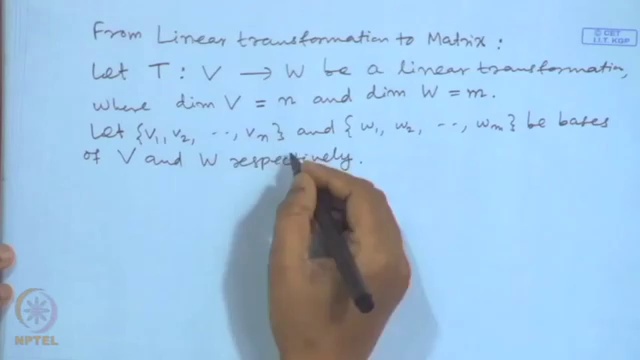 © CET
I.I.T. KGP
From Linear transformation to Matrix :
Let T : V → W be a linear transformation,
where dim V = n and dim W = m.
Let {v₁, v₂, ..., vₙ} and {w₁, w₂, ..., wₘ} be bases
of V and W respectively.
NPTEL